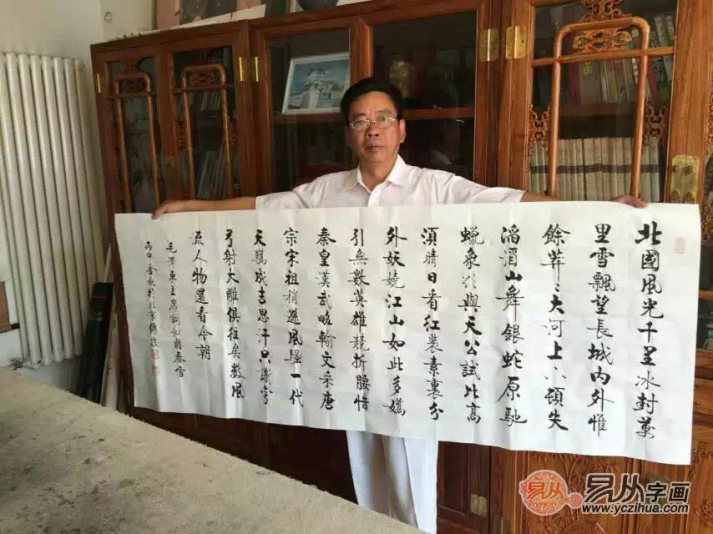 北國風光千里冰封萬
里雪飄望長城內外惟
餘莽〻大河上下頓失
滔滔山舞銀蛇原馳
蠟象欲與天公試比高
須晴日看紅裝素裹分
外妖嬈江山如此多嬌
引無數英雄競折腰惜
秦皇漢武略輸文采唐
宗宋祖稍遜風騷一代
天驕成吉思汗只識彎
弓射大雕俱往矣數風
流人物還看今朝
毛澤東主席詞沁園春雪
丙申金秋
易从
易从字画
www.yczihua.com